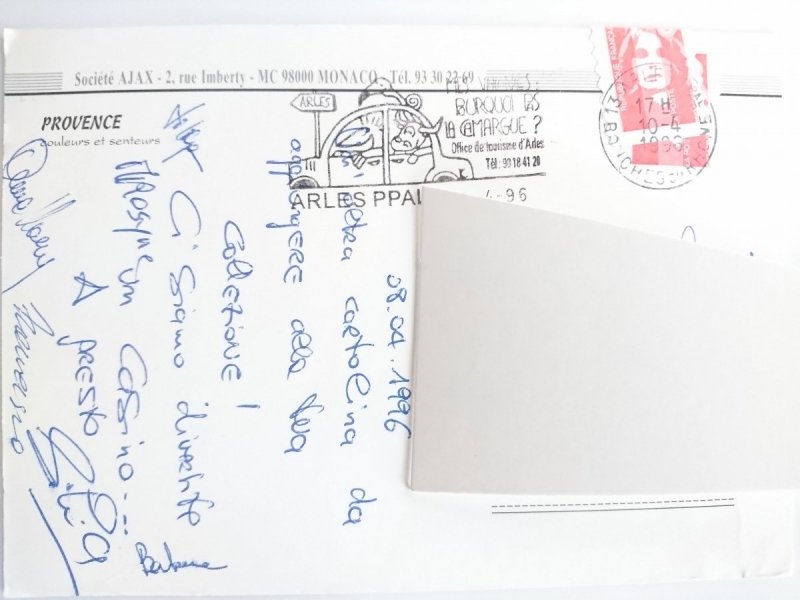 Société AJAX - 2, rue Imberty - MC 98000 MONACO - Tél. 93 30 22 69
PROVENCE
couleurs et senteurs
ARLES
BOURQUOI PAS
LA CAMARGUE ?
Office de tourisme d'Arles
Tél: 90 18 41 20
ARLES PPAL
4-96
13
17 H
10-4
1996
BOUCHES DU RHONE
08.04.1996
altra cartolina da
aggiungere alla tua
collezione!
Ci siamo divertiti
un casino...
A presto
Francesco
Barbara